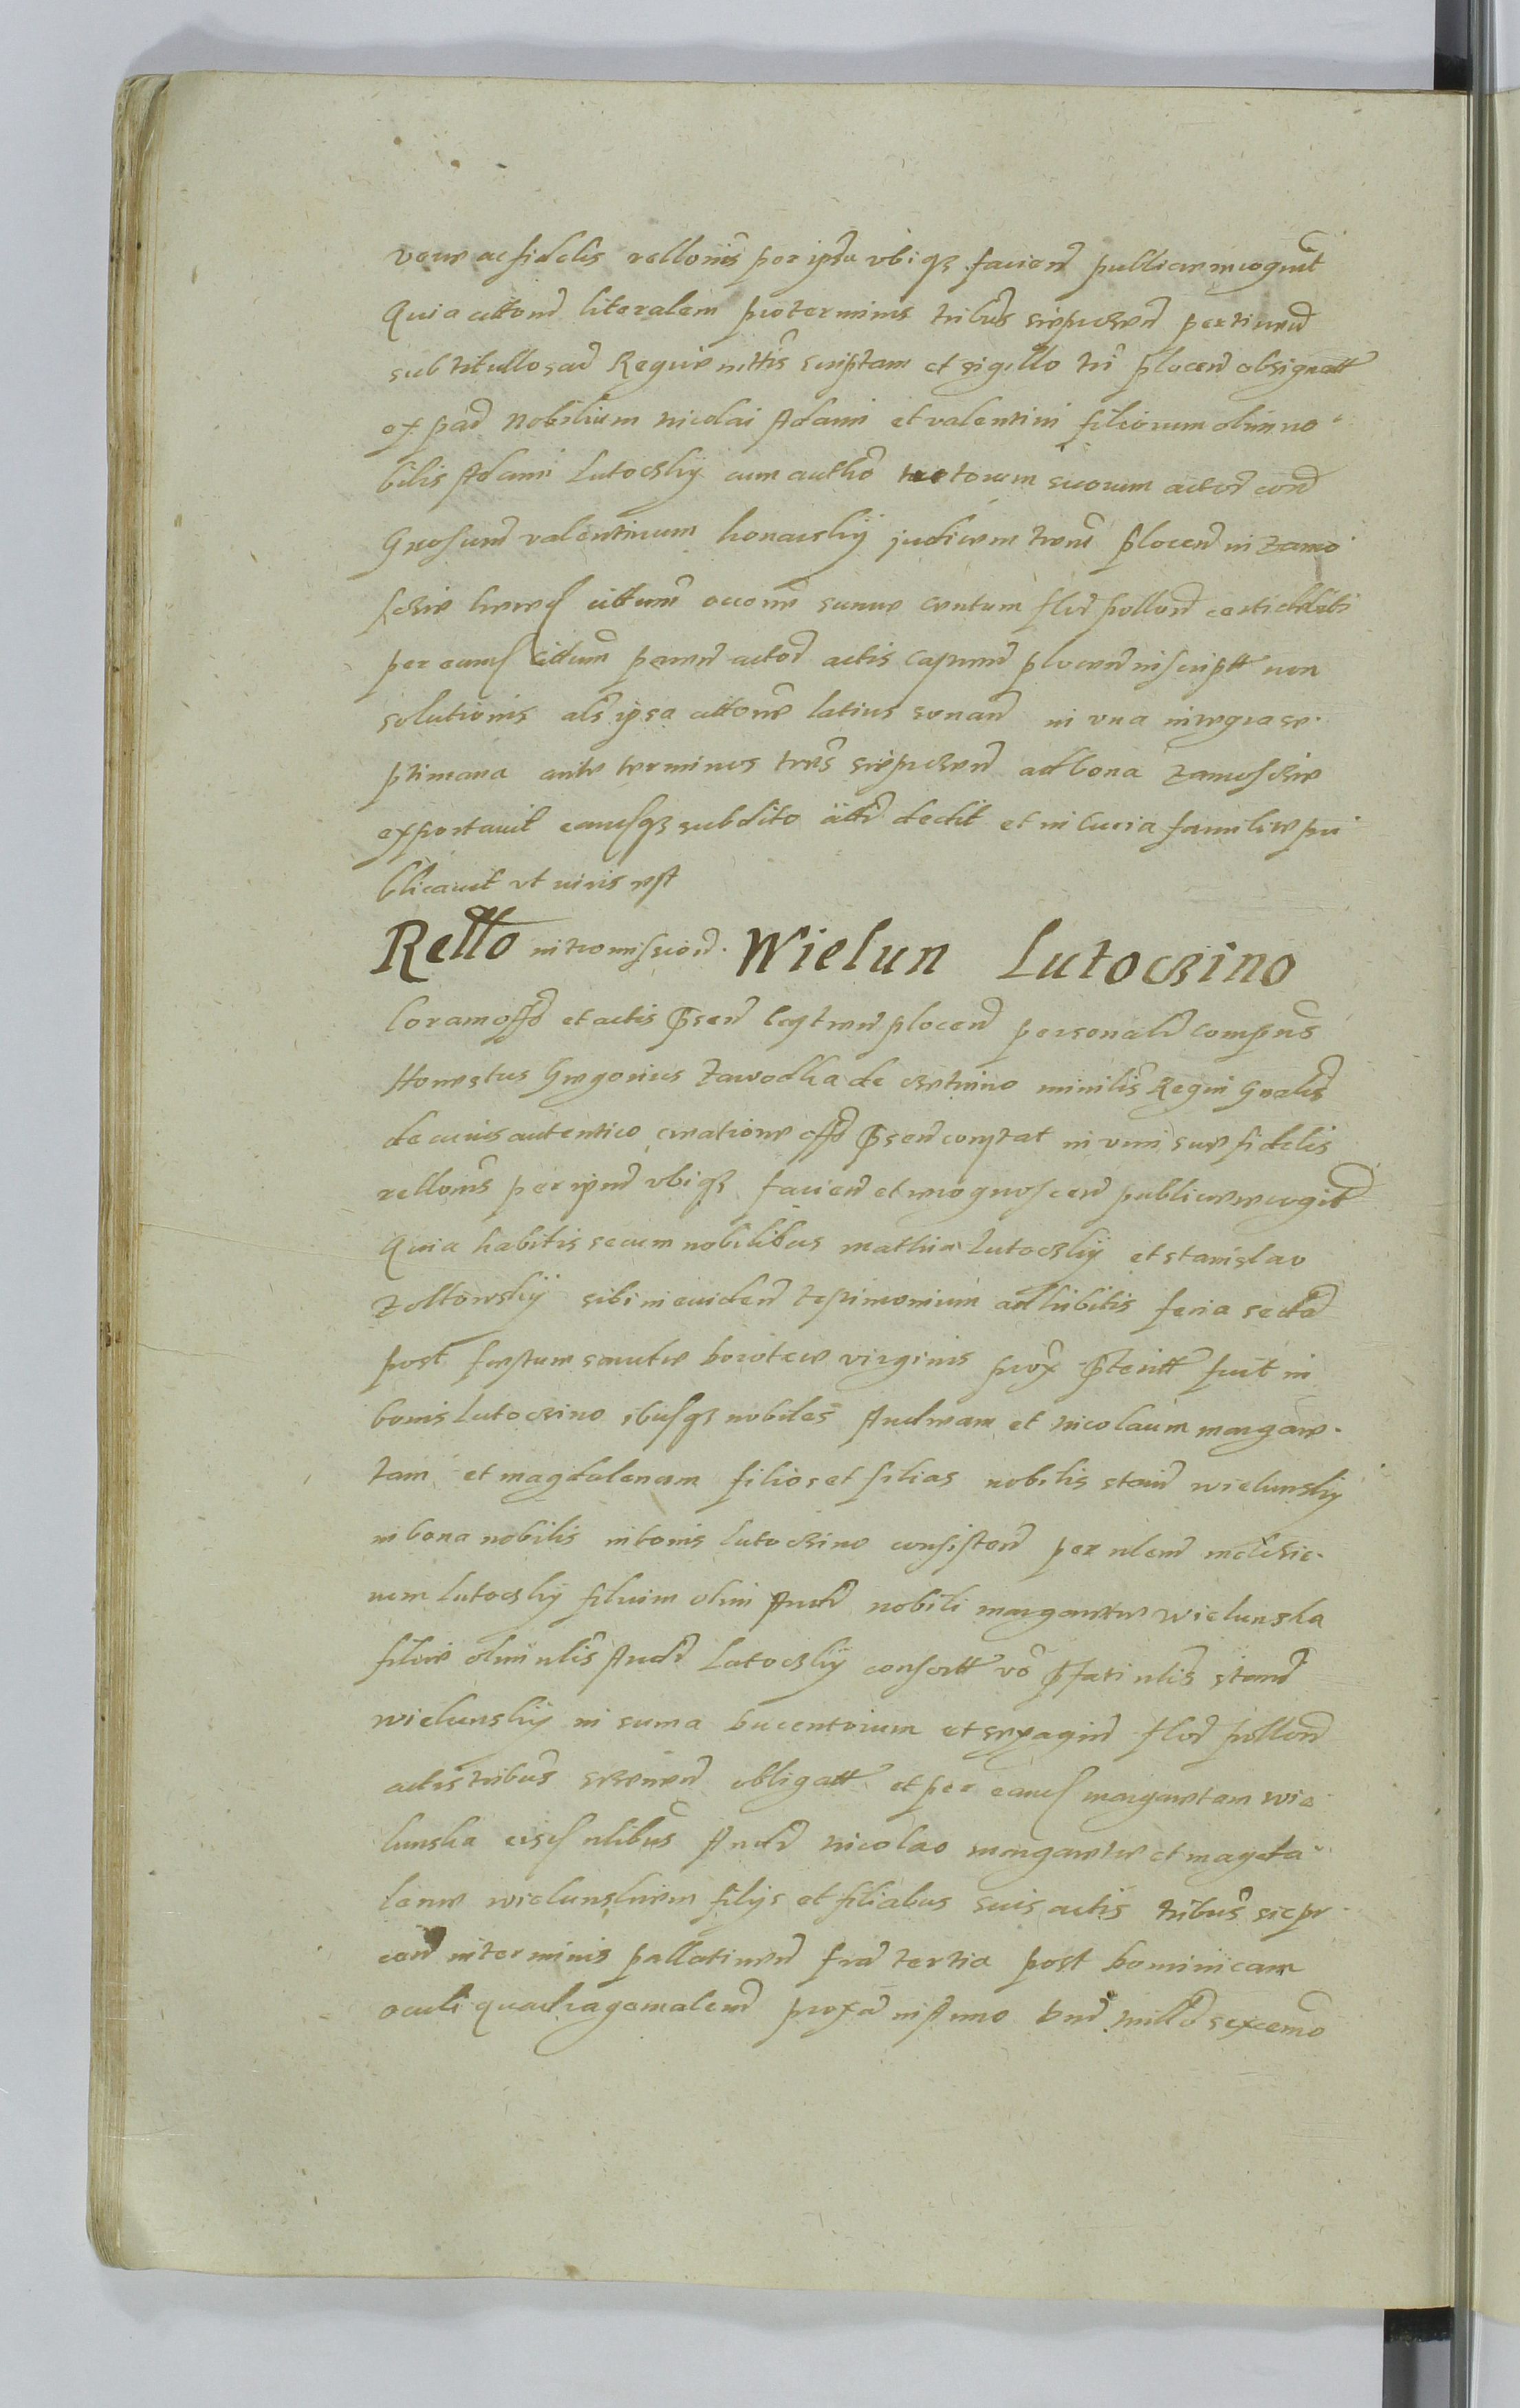 vere ac fidelis relonis per ipsu ubiqz faciend publice recognit
Quia citonem literalem pro terminis tribus siepreen pertinend
sub titullo sac Regie mttis scriptam et sigillo tri plocen obsignatt
ex pad Nobilium nicolai Adami et valentini filiorum olim no
bilis Adami Lutoczky cum autho tutorum suorum actor cond
Gnosum valentinum konarskÿ judicem trem plocen in zamo
fine titum occone sume centum flor pollon certi debiti
per eund citum penes actor actis castren plocen inscriptt non
solutionis als ipsa citone latius sonan in una integra se
ptimana ante terminos tres siepreen ad bona
exportavit eamqz subdito ibid dedit et in curia familie pu
blicavit ut iuris est
Rello intromission. Wielun Lutoczino
Coram offo et actis psen plocen personalr compns
Honestus Gregorius Zawodka de minilis Regni Gnalis
de cuius autentico creatione offo psen constat in vim sue fidelis
relonis per ipsum ubiqz facien et recognoscen publice recogit
Quia habitis secum nobilibus mathia Lutoczky et stanislao
Zoltowskÿ sibi in eviden testimonium adhibitis feria secd
post festum sancte dorotee virginis prox pteritt fuit in
bonis Lutoczino ibusqz nobiles Andream et nicolaum margare
tam et magdalenam filios et filias nobilis stanis wielunsky
in bona nobilis in bonis Lutoczino consisten per nlem
num Lutoczky filium olim Andr nobili margarete wielunska
filie olim nlis Andr Lutoczky consortt vo pfati nlis stanis
wielunsky in suma ducentorum et sexagin flor pollon
actis tribus obligatt et per eand margaretam wie
lunska eisd nlibus Andr nicolao margarete et magda
lene filijs et filiabus suis actis tribus siepr
cen in terminis pallatinen fria tertia post dominicam
oculi quadragesimalem proxa in Anno Dni millo sexcemo